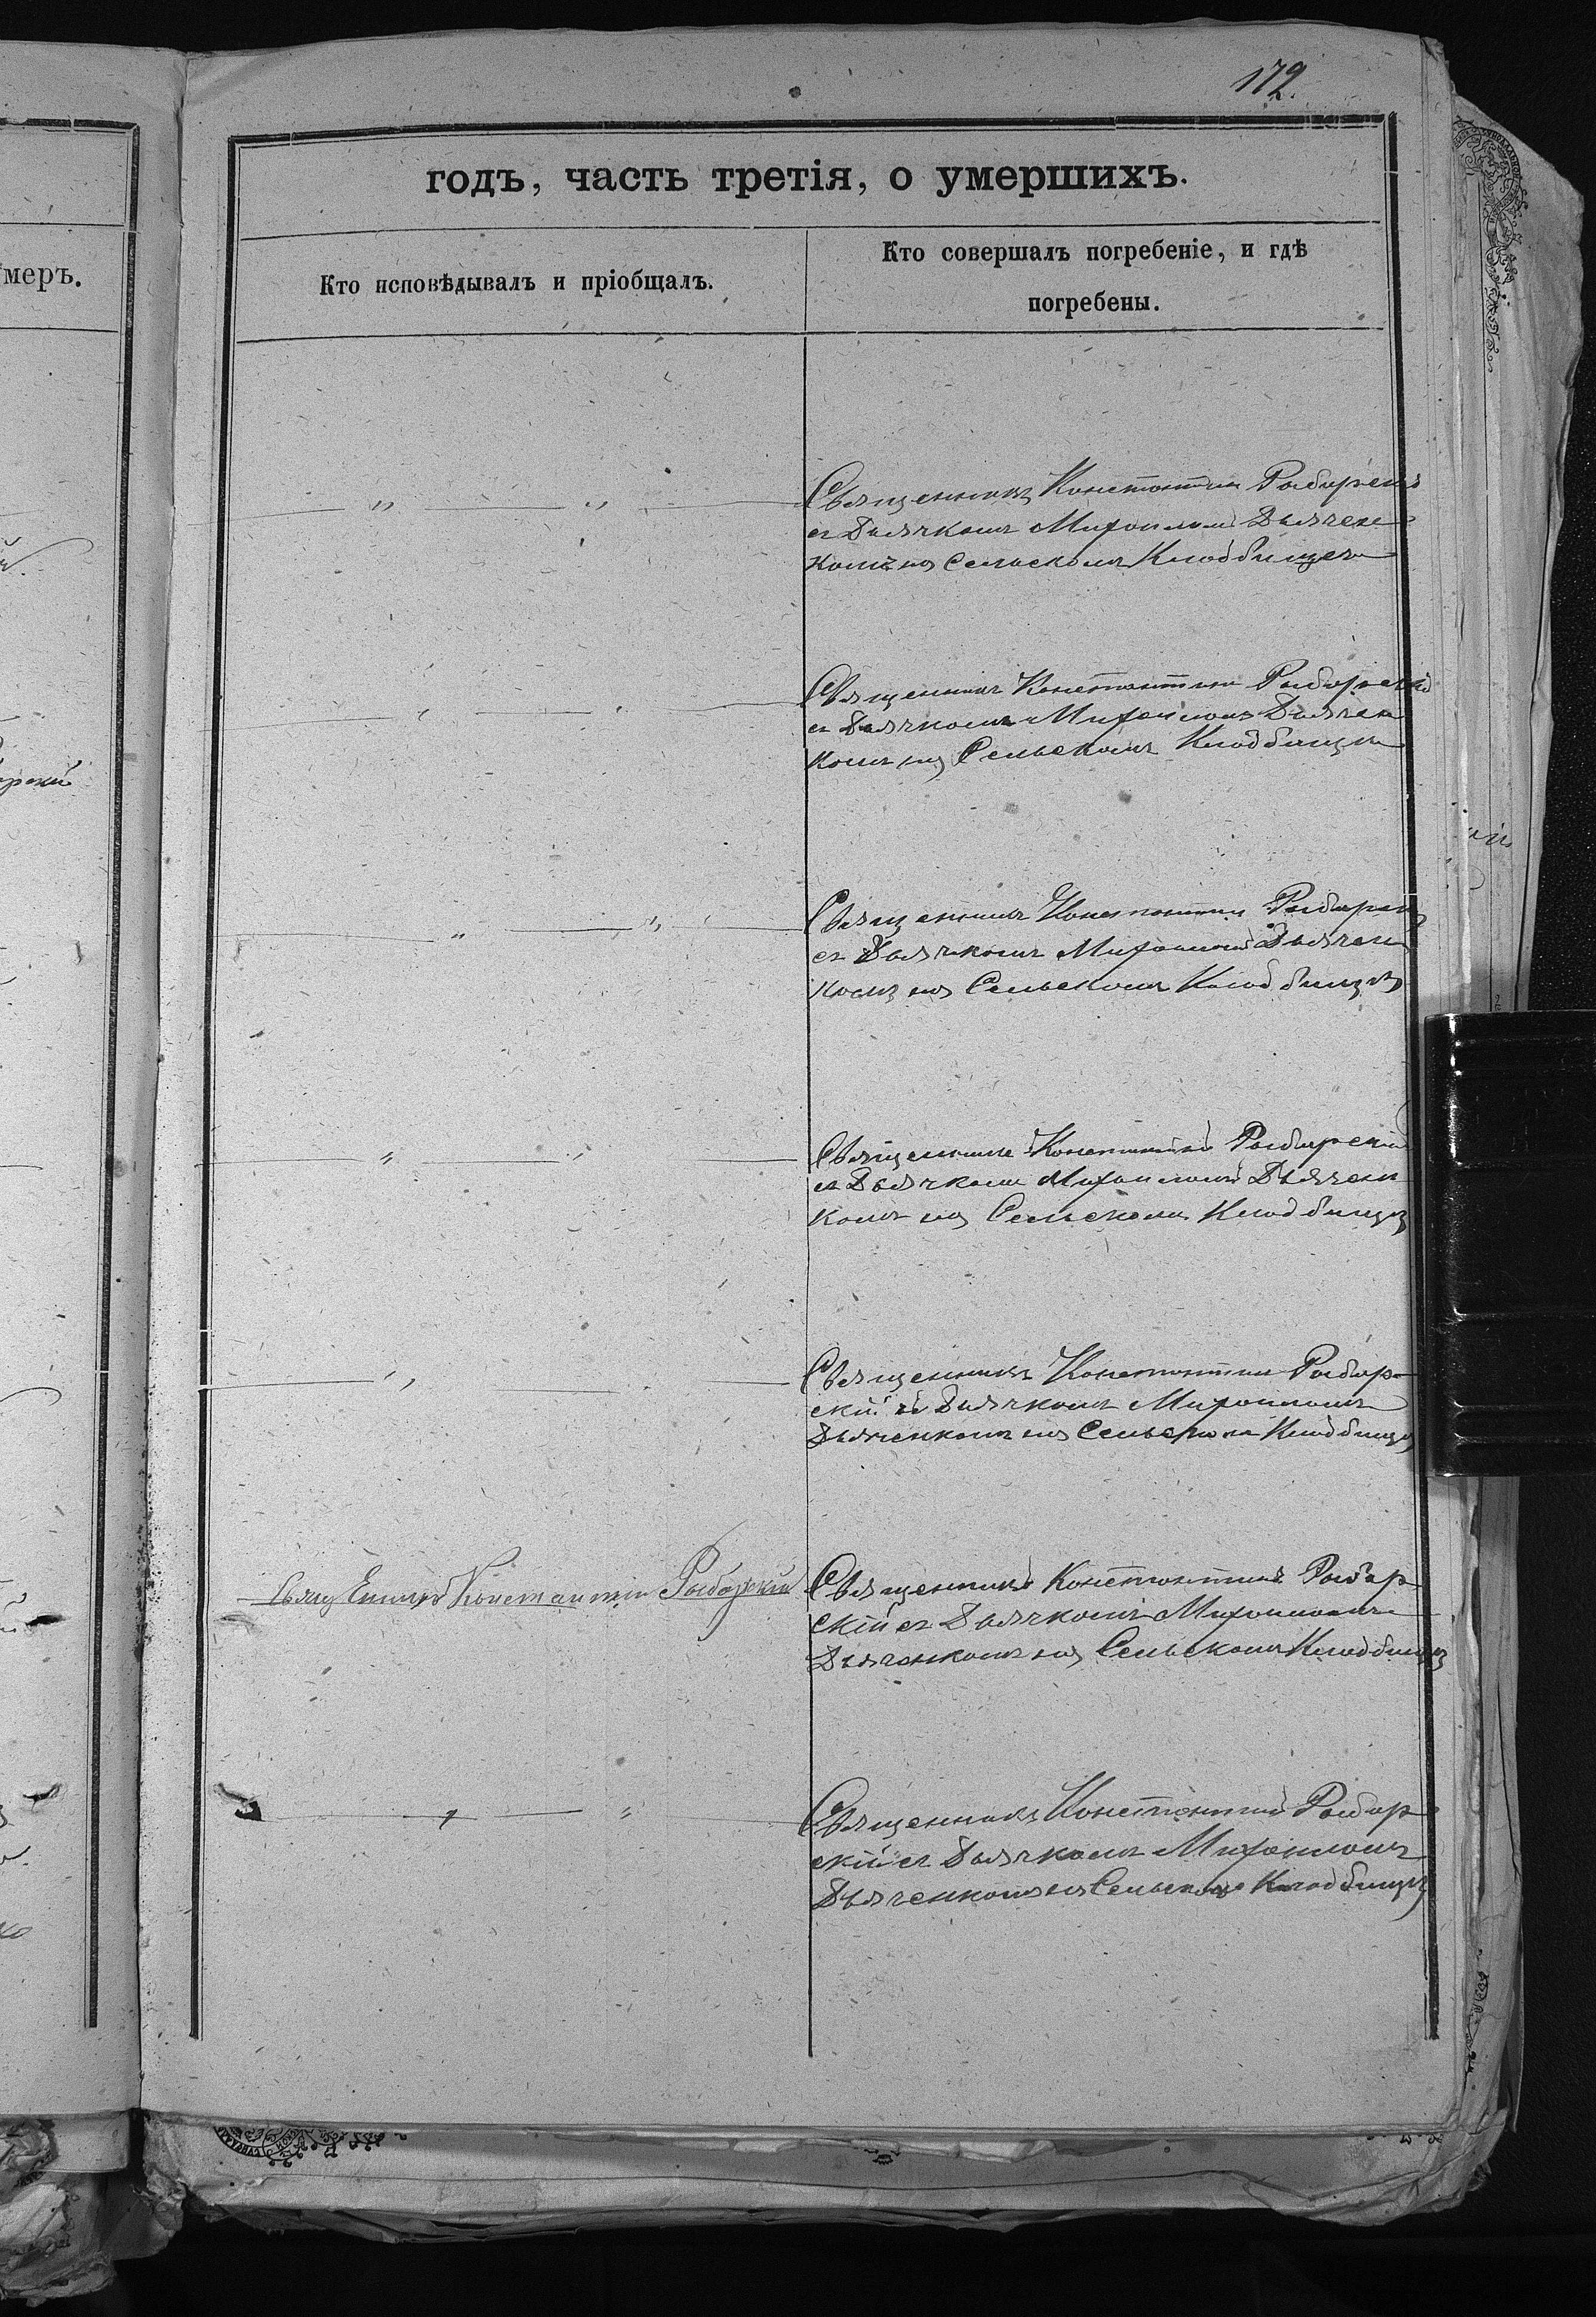 172.
годъ, часть третія, о умершихъ.
меръ.
Кто исповѣдывалъ и пріобщалъ.
Кто совершалъ погребеніе, и гдѣ
погребены.
Священникъ Константинъ Рыбарскій
съ Дьячкомъ Михаиломъ Дьячен
комъ на Сельскомъ Кладбищѣ
Священникъ Константинъ Рыбарскій
съ Дьячкомъ Михаиломъ Дьячен
комъ на Сельскомъ Кладбищѣ
Священникъ Константинъ Рыбарскій
съ Дьячкомъ Михаиломъ Дьячен
комъ на Сельскомъ Кладбищѣ
Священникъ Константинъ Рыбарскій
съ Дьячкомъ Михаиломъ Дьячен
комъ на Сельскомъ Кладбищѣ
Священникъ Константинъ Рыбар-
скій съ Дьячкомъ Михаиломъ
Дьяченкомъ на Сельскомъ Кладбищѣ
Священникъ Константинъ Рыбарскій
Священникъ Константинъ Рыбар
скій съ Дьячкомъ Михаиломъ
Дьяченкомъ на Сельскомъ Кладбищѣ
Священникъ Константинъ Рыбар
скій съ Дьячкомъ Михаиломъ
Дьяченкомъ на Сельскомъ Кладбищѣ